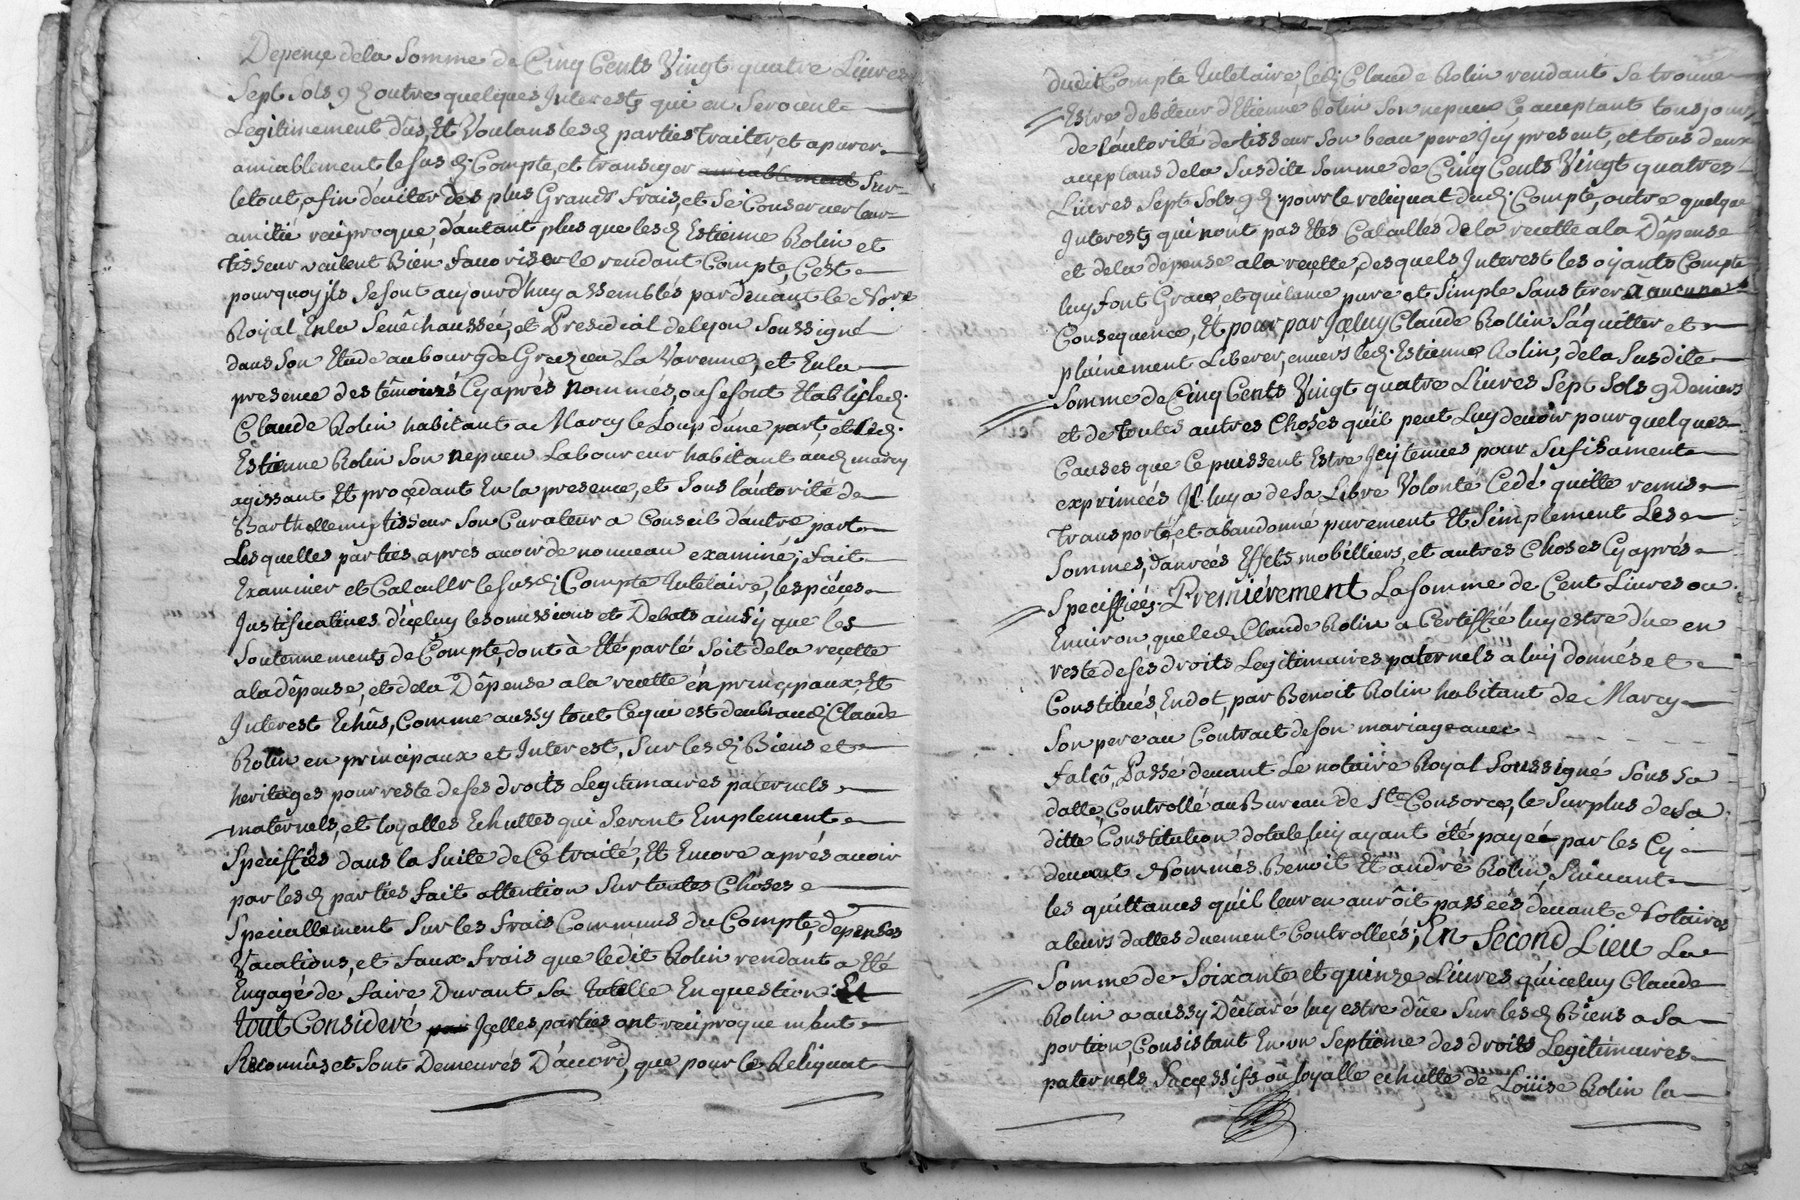 Depence dela Somme de Cinq Cents Vingt quatre Livres
Sept Sols 9 d outre quelques Interests qui en Seroient
Legitimement dus, Et Voulans lesd parties Traiter, et apurer
amiablement le Susd. Compte, et transiger amiablement Sur
le tout, afin d'éviter des plus Grands frais, et Se Conserver leur
amitié reciproque, d'autant plus que lesd Estienne Rolin et
tisseur veulent Bien favoriser le rendant Compte, C'est
pourquoy ils Se sont aujourd'huy assemblés pardevant le Nore
Royal En la Senêchaussée, et Presidial de Lyon Soussigné
dans Son Etude au bourg de Grezieu La Varenne, et En la
presence des têmoins Cy aprés nommés, ou se sont Etablis led.
Claude Rolin habitant a Marcy le Loup d'une part, et led.
Estienne Rolin Son nepveu Laboureur habitant aud marcy
agissant Et procedant En la presence, et Sous l'autorité de
Barthellemy tisseur Son Curateur a Conseil d'autre part
Lesquelles parties aprés avoir de nouveau examiné, fait
Examiner et Calculer le susd. Compte tutelaire, les piéces
Justificatives d'iceluy les omissions et Debats ainsy que les
Soutennements de Compte, dont à Eté parlé Soit de la recette
a la dêpense, et dela Dêpense a la recette én principaux, Et
Interest Echûs, Comme aussy tout Ce qui est deub aud. Claude
Rolin en principaux et Interest, Sur lesd. Biens et
heritages pour reste de ses droits Legitimaires paternels
maternels, et loyalles Echuttes qui Seront Emplement
Speciffiés dans la Suite de Ce traité, Et Encore aprés avoir
par lesd parties fait attention Sur toutes Choses
Speciallement Sur les frais Communs du Compte, depenses
Vacations, et faux frais que ledit Rolin rendant a Eté
Engagé de faire Durant Sa tutelle En question Et
tout Consideré par Icelles parties ont reciproquement
Reconnûs et Sont Demeurés D'accord, que pour le Reliquat
dudit Compte tutelaire, led. Claude Rolin rendant Se trouve
Estre debiteur d'Etienne Rolin Son nepveu Ce acceptant tousjours
de l'autorité de tisseur Son beau pere Icy present, et tous deux
acceptans de la Susdite Somme de Cinq Cents Vingt quatres
Livres Sept Sols 9 d. pour le reliquat dud. Compte, outre quelque
Interests qui n'ont pas Etés Calcullés de la recette a la Dêpense
et dela dépense a la recette, desquels Interest les oyants Compte
luy font Grace et quitance pure et Simple Sans tirer a aucune
Consequence, Et pour par Iceluy Claude Rollin S'aquitter et
plainement Liberer, envers led. Estienne Rolin, de la Susdite
Somme de Cinq Cents Vingt quatre Livres Sept Sols 9 Deniers
et de toutes autres Choses qu'il peut Luy devoir pour quelques
Causes que Ce puissent Estre Icy tenues pour Sufisament
exprimées Il luy a de sa Libre Volonté Cedé quitté remis
transporté et abandonné purement Et Simplement Les
Sommes, danrées Effets mobilliers, et autres Choses Cy aprés
Speciffiées. Premiérement La somme de Cent Livres ou
Environ, que led. Claude Rolin a Certiffié luy estre dûe en
reste de ses droits Legitimaires paternels a luy donnés et
Constitués En dot, par Benoit Rolin habitant de Marcy
Son pere au Contract de son mariage avec
falcô, Passé devant Le notaire Royal Soussigné Sous Sa
datte, Controllé au Bureau de Ste Consorce, le Surplus de Sa
ditte Constitution dotale luy ayant été payeé par les Cy
devant Nommés Benoit Et andré Rolin, Suivant
les quittances qu'il leur en auroit passeés devant Notaires
a leurs dattes duement Controlleés; En Second Lieu La
Somme de Soixante et quinze Livres qu'iceluy Claude
Rolin a aussy Dêclaré luy estre dûe Sur lesd Biens a Sa
portion, Consistant En un Septiéme des droits Legitimaires
paternels Successifs ou loyalle echutte de Loüise Rolin la